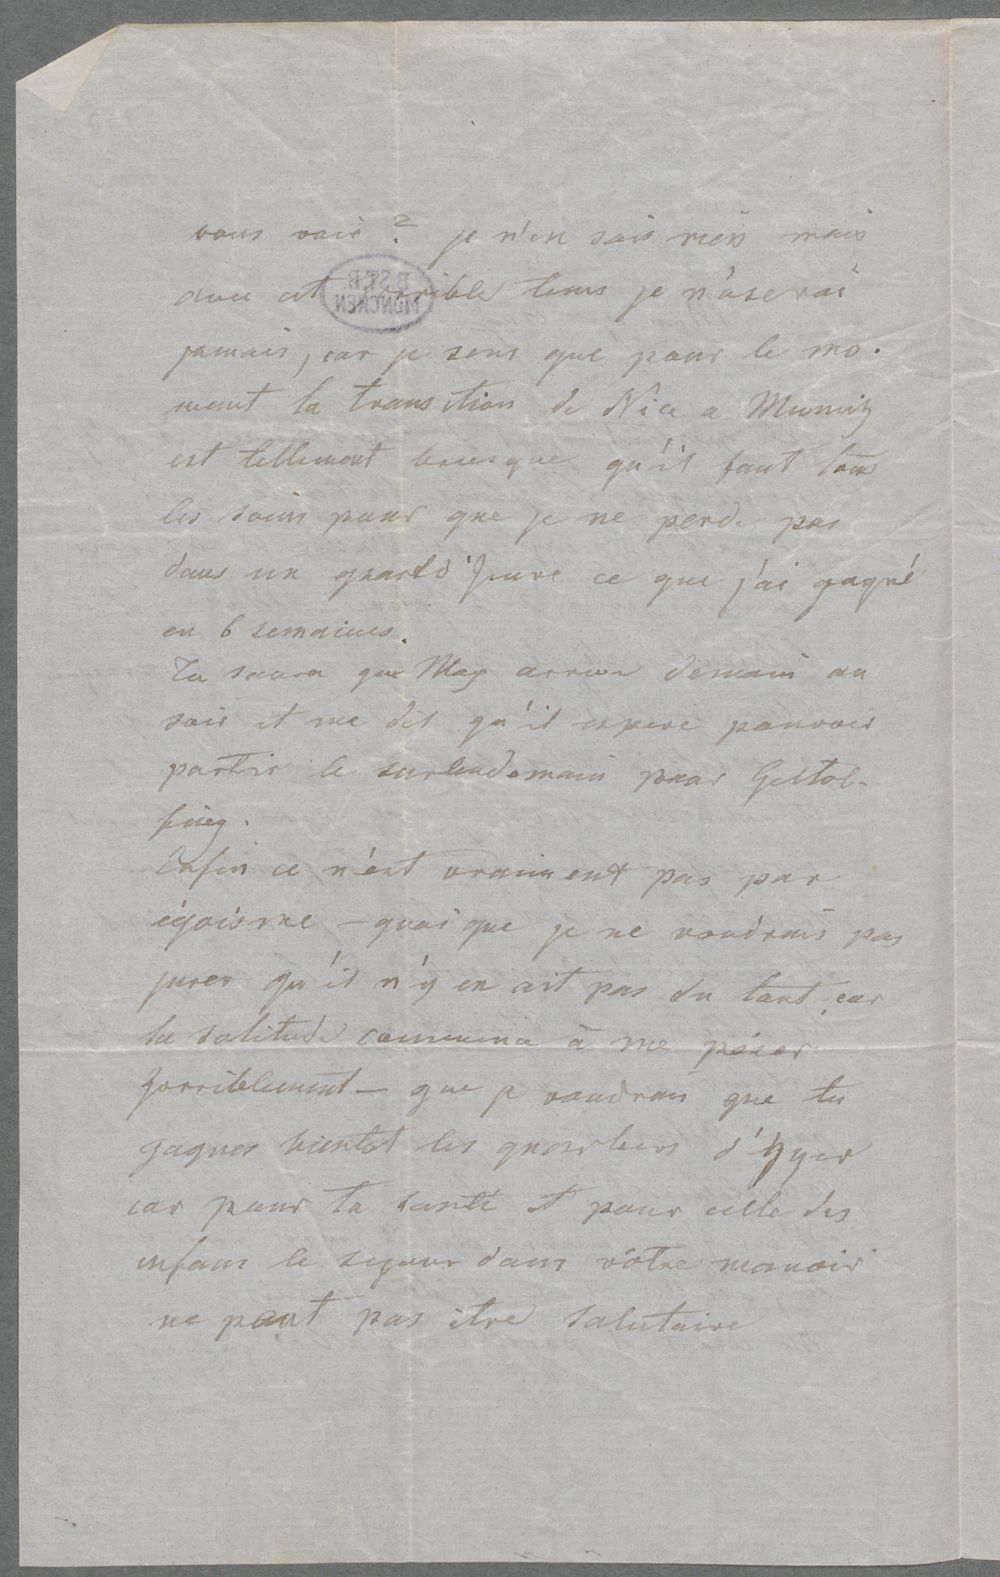 vous voir ? je n'en sais rien mais
avec cet horrible tems je n'oserai
jamais, car je sens que pour le mo-
ment la transition de Nice a Munich
est tellement brusque qu'il faut tous
les soins pour que je ne perde pas
dans un quart d'heure ce que j'ai gagné
en 6 semaines.
Tu saura que Max arrive demain au
soir et me dit qu'il espere pouvoir
partir le surlendemain pour Geltol-
fing.
Enfin ce n'est vraiment pas par
égoisme – quoique je ne voudrais pas
jurer qu'il n'y en ait pas du tout, car
la solitude commence à me peser
horriblement – que je voudrais que tu
gagnes bientot les quartiers d'hyver
car pour ta santé et pour celle des
enfans le sejour dans vôtre manoir
ne peut pas être salutaire
B.ST.B.
MÜNCHEN